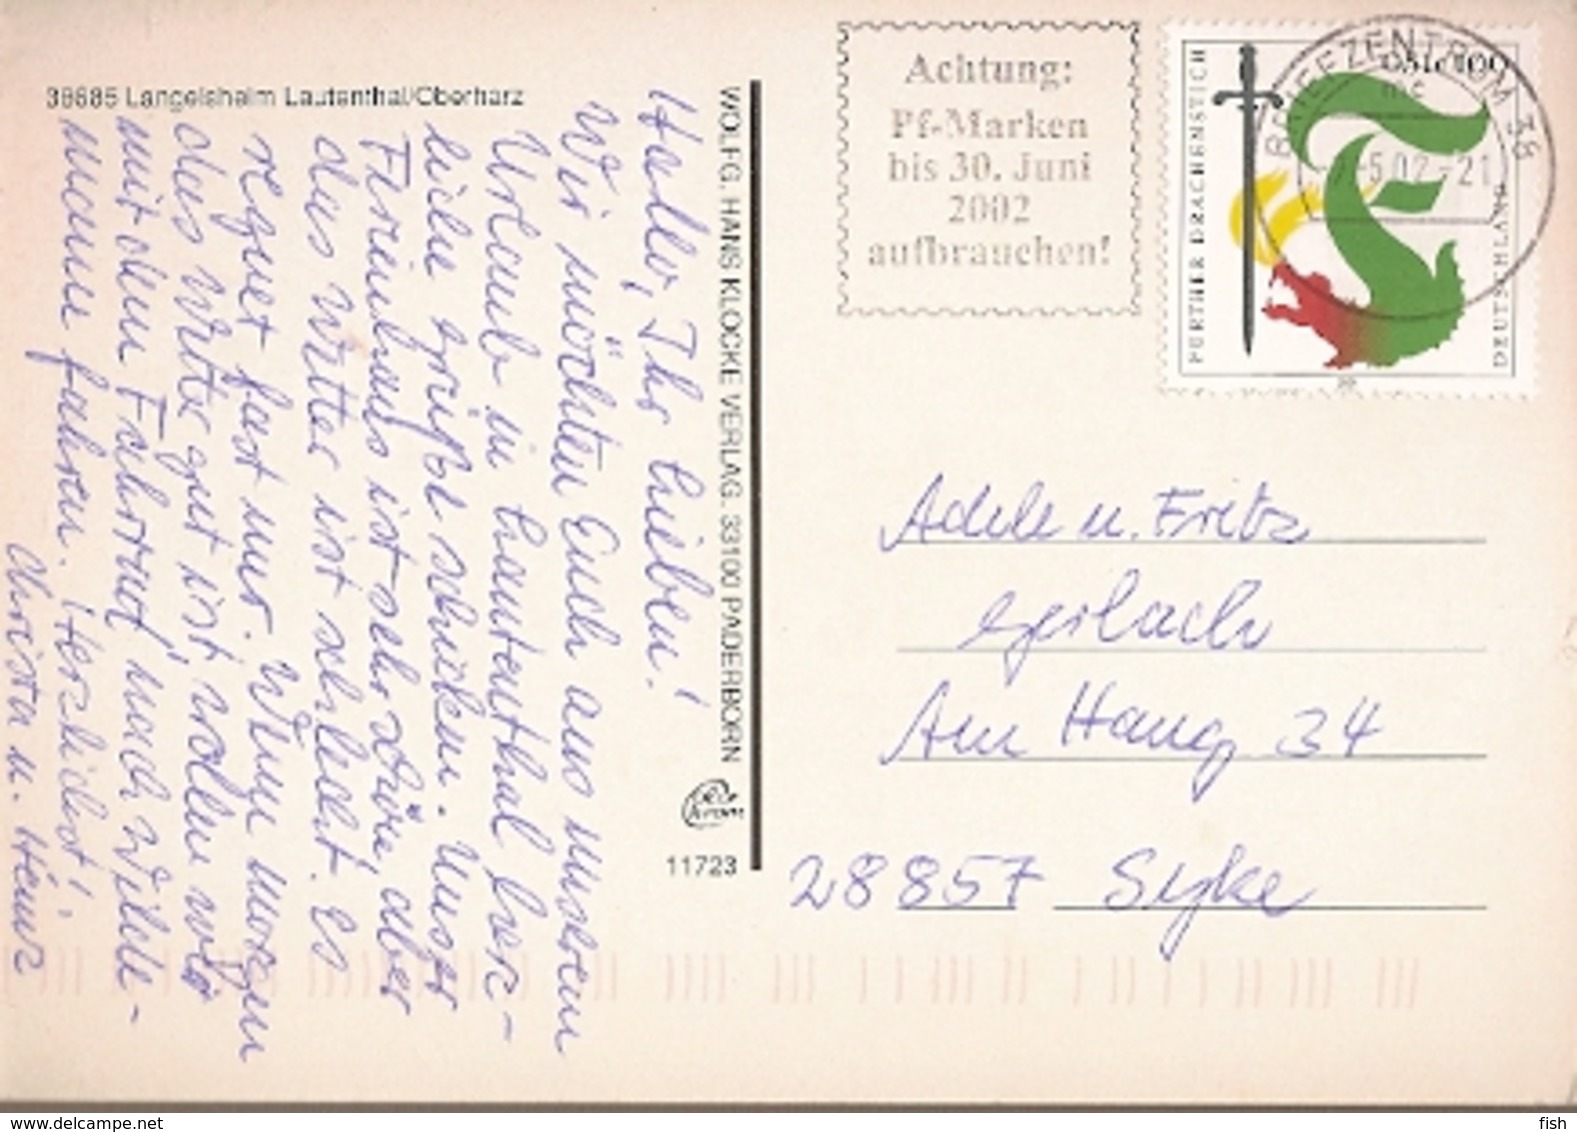 38685 Langelsheim Lautenthal/Oberharz
Hallo, Ihr Lieben!
Wir möchten Euch aus unserem
Urlaub in Lautenthal herz-
liche Grüße schicken. Unser
Ferienhaus ist sehr schön, aber
das Wetter ist schlecht. Es
regnet fast nur. Wenn morgen
das Wetter gut ist, wollen wir
mit dem Fahrrad nach Wilde-
mann fahren. Herzlichst,
Christa u. Heinz
WOLFG. HANS KLOCKE VERLAG. 33100 PADERBORN
11723
Achtung:
Pf-Marken
bis 30. Juni
2002
aufbrauchen!
BRIEFZENTRUM 38
5.02.-21
FURTHER DRACHENSTICH
DEUTSCHLAND
100
Adele u. Fritz
Gerlach
Am Hang 34
28857 Syke
delcampe.net
fish